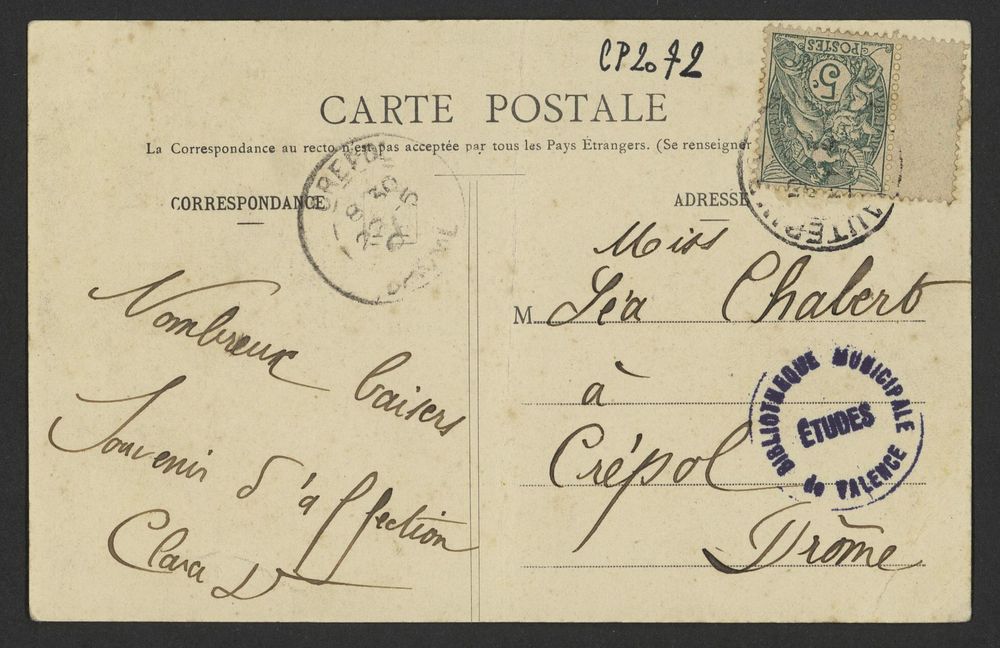 CP2072
POSTES
5c
CARTE POSTALE
La Correspondance au recto n'est pas acceptée par tous les Pays Étrangers. (Se renseigner
CORRESPONDANCE
ADRESSE
Nombreux baisers
Souvenir d'affection
Clara D
Miss
M. Léa Chabert
à
Crépol
Drôme
BIBLIOTHEQUE MUNICIPALE
ÉTUDES
de VALENCE